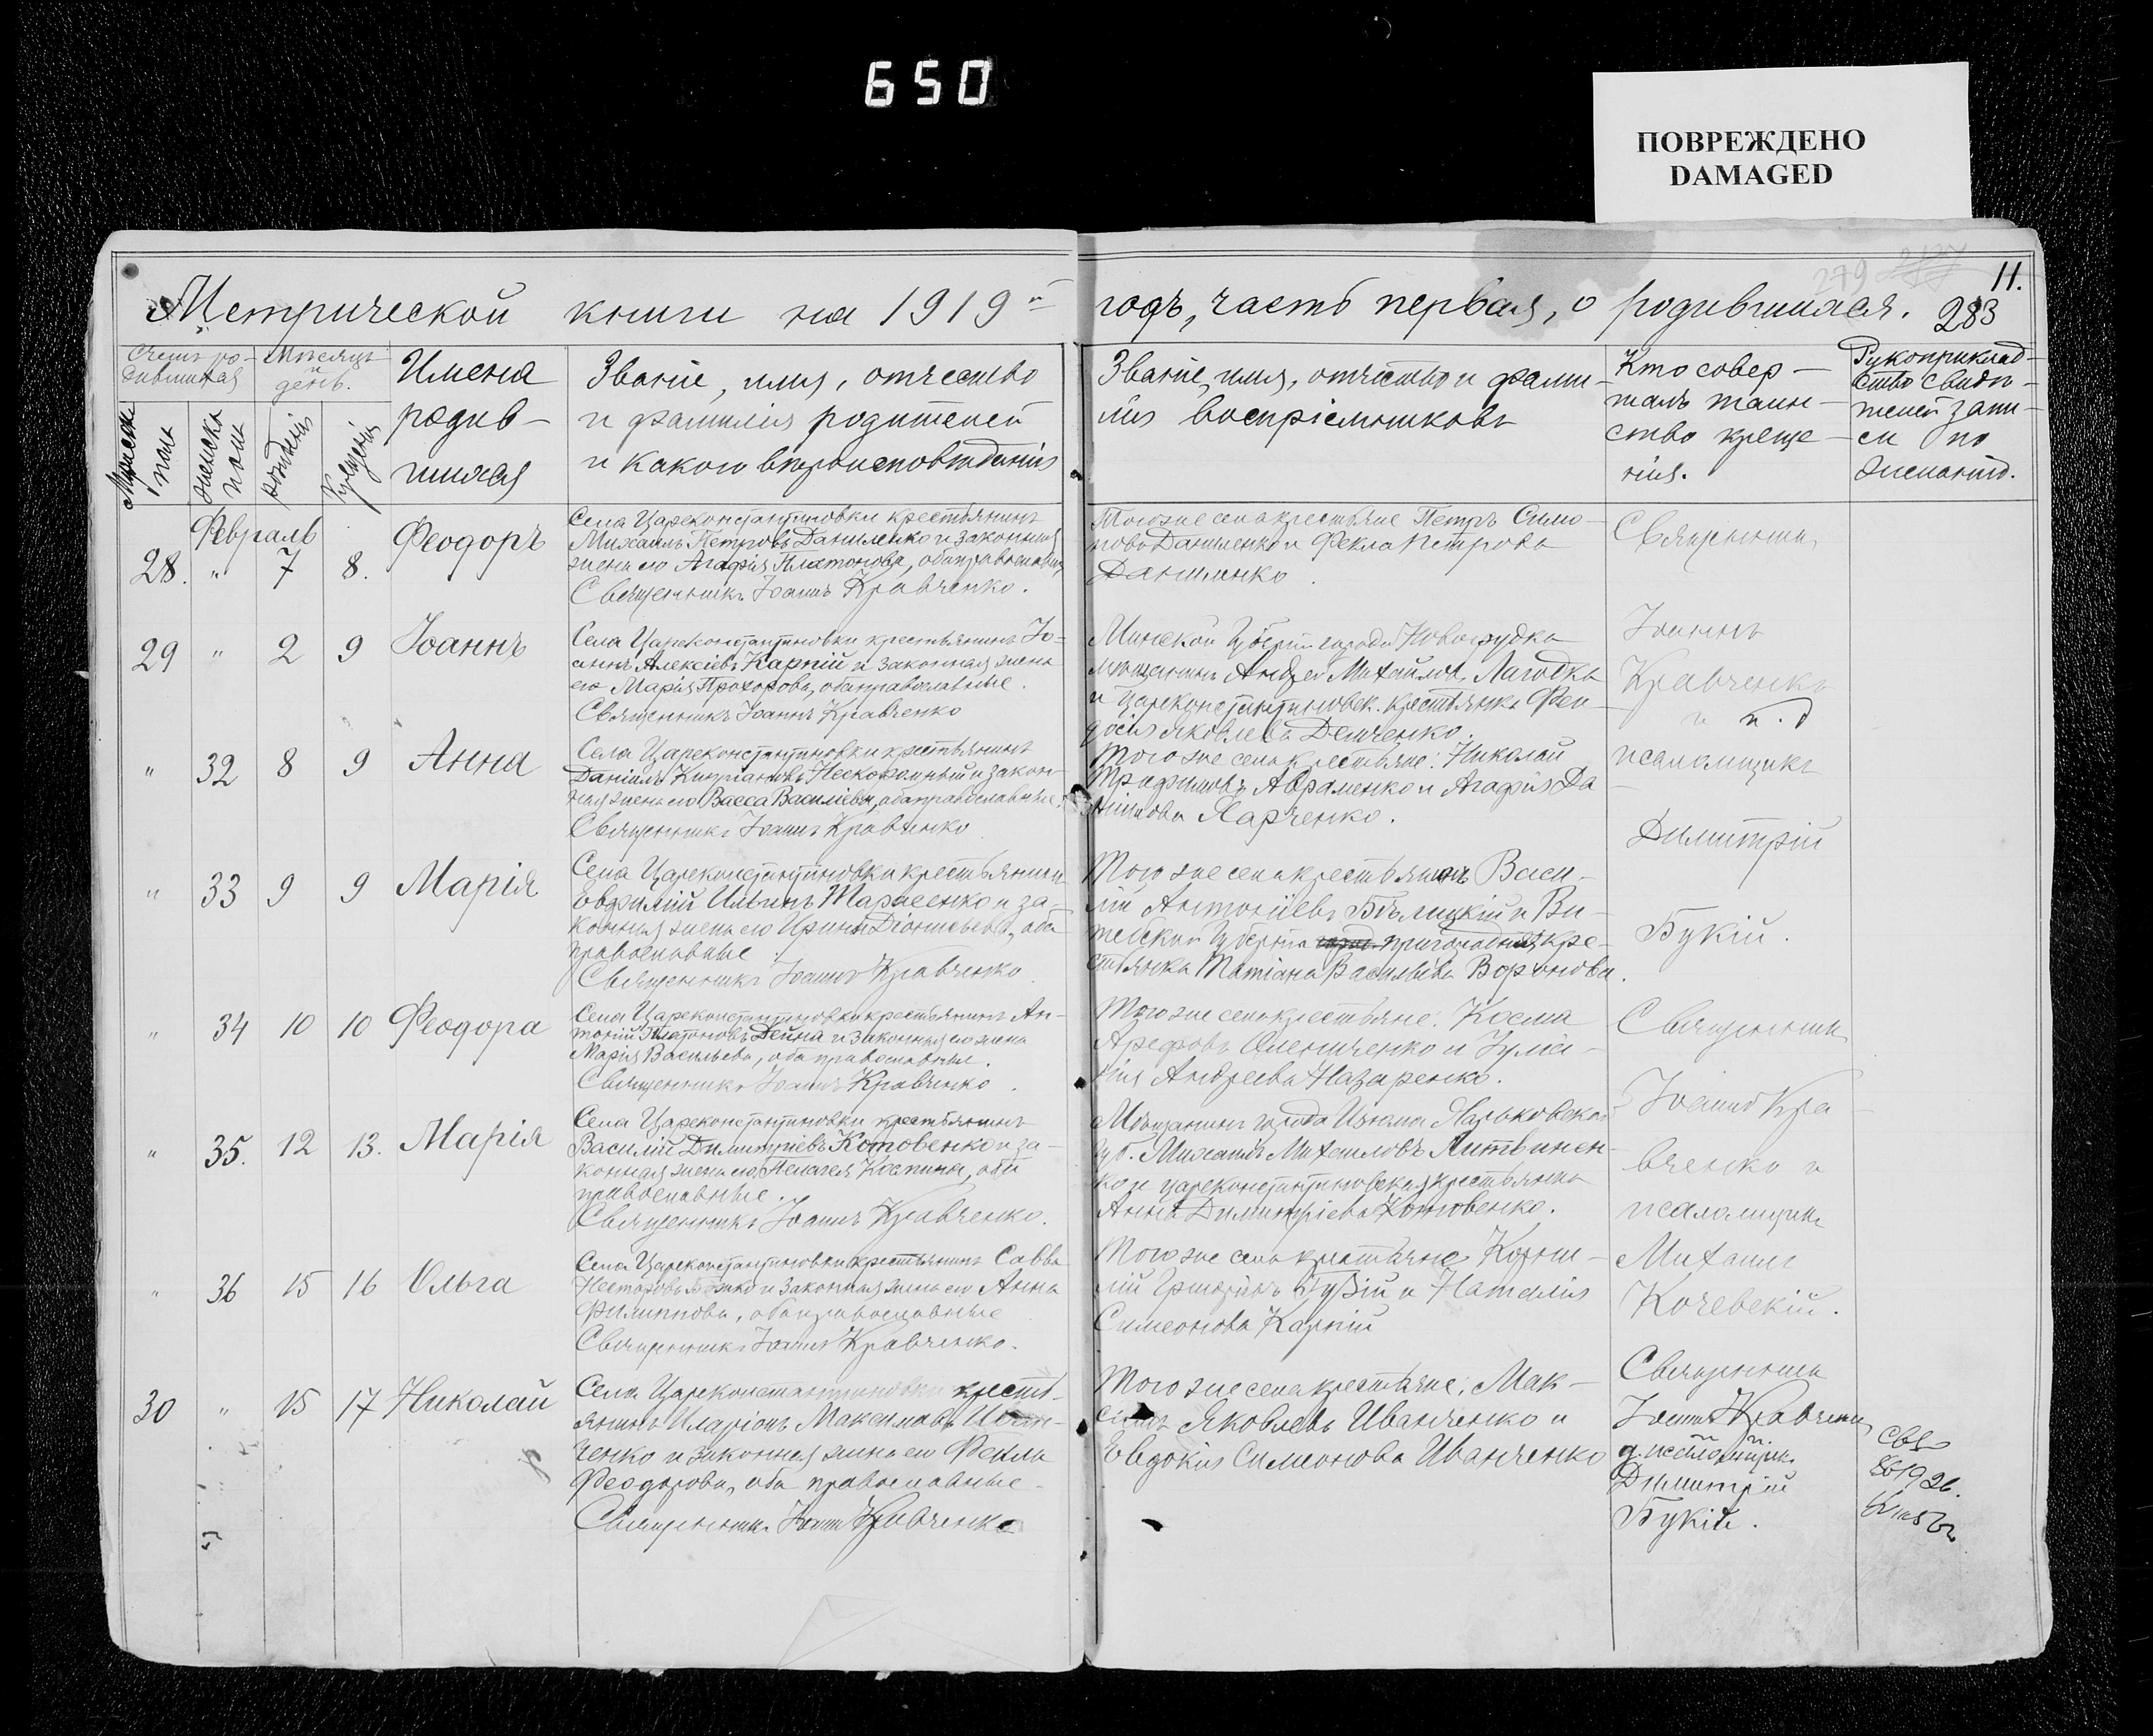 650
ПОВРЕЖДЕНО
DAMAGED
279
11.
Метрической книги на 1919й годъ, часть первая, о родившихся. 283
Счетъ ро-
дившихся
Мужеска
пола
женска
пола
Мѣсяцъ
и
день.
рожденія
Крещенія
Имена
родив-
шихся
Званіе, имя, отчество
и фамилія родителей
и какого вѣроисповѣданія
Званіе, имя, отчество и фами-
лія воспріемниковъ
Кто совер-
шалъ таин-
ство креще-
нія.
Рукоприклад-
ство свидѣ-
телей запи-
си по
желанію.
Февраль
28. " 7 8. Феодоръ
Села Цареконстантиновки крестьянинъ
Михаилъ Петровъ Даниленко и законная
жена его Агафія Платонова, оба православные
Священникъ Іоаннъ Кравченко.
Того же села крестьяне Петръ Симо-
новъ Даниленко и Фекла Петрова
Даниленко.
Священникъ
29 " 2 9 Іоаннъ
Села Цареконстантиновки крестьянинъ Іо-
аннъ Алексіевъ Карпій и законная жена
его Марія Прохорова, оба православные.
Священникъ Іоаннъ Кравченко
Минской губерніи города Новогрудка
мѣщанинъ Андрей Михайловъ Лагодка
и цареконстантиновск. крестьянка Фео-
досія Яковлева Демченко.
Іоаннъ
Кравченко
и и. д
" 32 8 9 Анна
Села Цареконстантиновки крестьянинъ
Даніилъ Кипріановъ Нескоромный и закон-
ная жена его Васса Василіева, оба православные.
Священникъ Іоаннъ Кравченко
Того же села крестьяне: Николай
Трофимовъ Авраменко и Агафія Да
ніилова Харченко.
псаломщика
Димитрій
" 33 9 9 Марія
Села Цареконстантиновки крестьянинъ
Евфимій Ильинъ Тарасенко и за-
конная жена его Ирина Діонисьева, оба
православные.
Священникъ Іоаннъ Кравченко
Того же села крестьянинъ Васи-
лій Антоніевъ Бѣлицкій и Ви-
тебской губерніи пригородная кре-
стьянка Татіана Васильева Воронова.
Букій.
" 34 10 10 Феодора
Села Цареконстантиновки крестьянинъ Ан-
тоній Платоновъ Дейна и законная его жена
Марія Васильева, оба православные.
Священникъ Іоаннъ Кравченко.
Того же села крестьяне: Косма
Арефовъ Омельченко и Іулiа-
нія Андреева Назаренко.
Священникъ
" 35. 12 13. Марія
Села Цареконстантиновки крестьянинъ
Василій Димитріевъ Котовенко и за-
конная жена его Пелагея Космина, оба
православные.
Священникъ Іоаннъ Кравченко.
Мѣщанинъ города Изюма Харьковской
губ. Михаилъ Михаиловъ Литвинен-
ко и цареконстантиновская крестьянка
Анна Димитріева Котовенко.
Іоаннъ Кра-
вченко и
псаломщикъ
" 36 15 16 Ольга
Села Цареконстантиновки крестьянинъ Савва
Несторовъ и законная жена его Анна
Филиппова, оба православные
Священникъ Іоаннъ Кравченко.
Того же села крестьяне Корни-
лій Григорьевъ Гузій и Наталія
Симеонова Карпій
Михаилъ
Кочевскій.
30 " 15 17 Николай
Села Цареконстантиновки кресть-
янинъ Иларіонъ Максимовъ Иван-
ченко и законная жена его Фекла
Феодорова, оба православные.
Священникъ Іоаннъ Кравченко
Того же села крестьяне: Мак-
симъ Яковлевъ Иванченко и
Евдокія Симеонова Иванченко
Священникъ
Іоаннъ Кравченко
д. псаломщика
Димитрій
Букій.